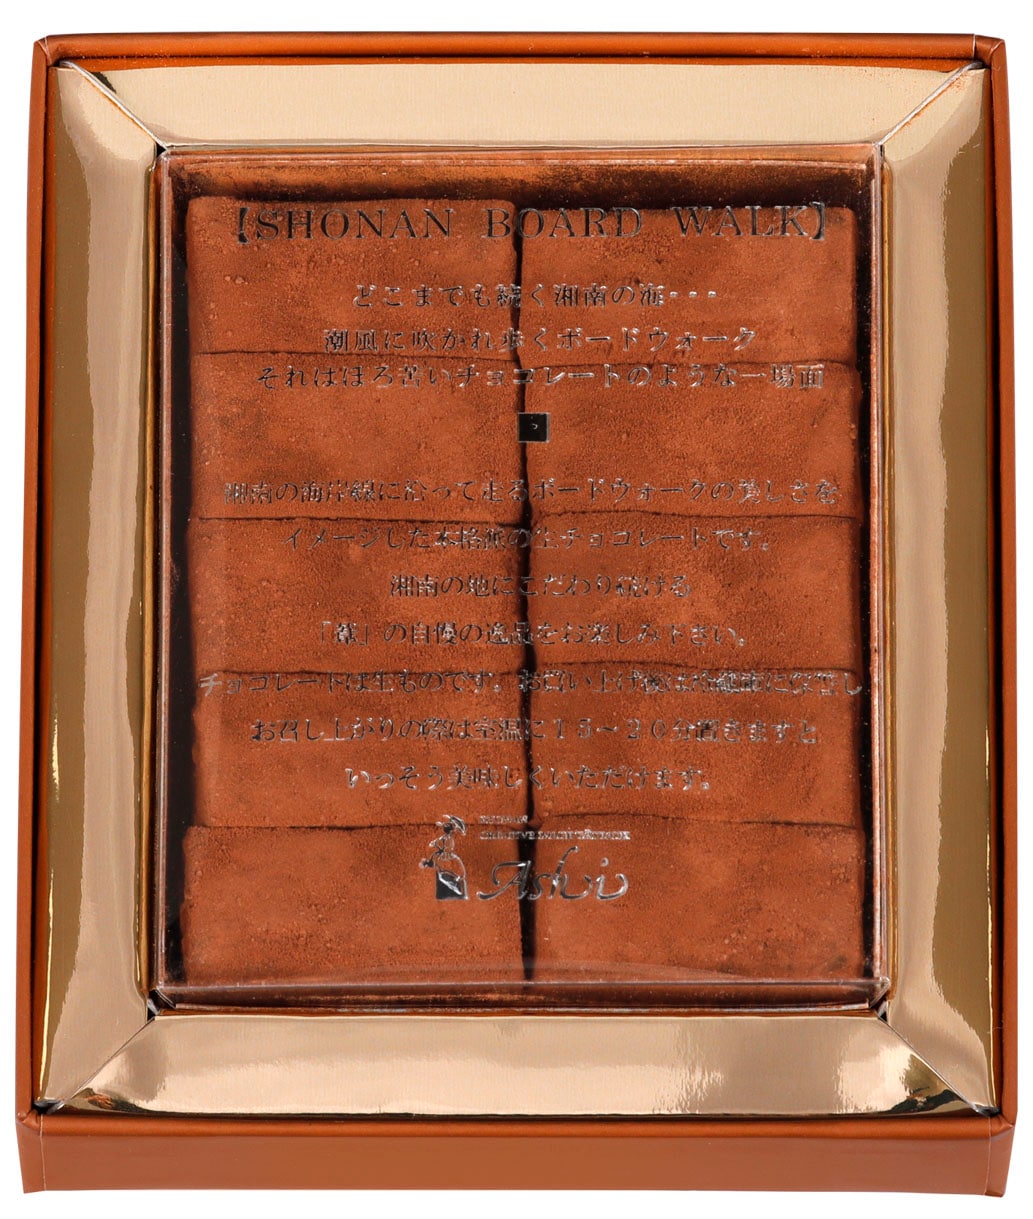 【SHONAN BOARD WALK】
どこまでも続く湘南の海・・・
潮風に吹かれ歩くボードウォーク
それはほろ苦いチョコレートのような一場面
湘南の海岸線に沿って走るボードウォークの美しさを
イメージした本格派の生チョコレートです。
湘南の地にこだわり続ける
「葦」の自慢の逸品をお楽しみ下さい。
チョコレートは生ものです。お買い上げ後は冷蔵庫に保管し
お召し上がりの際は室温に15〜20分置きますと
いっそう美味しくいただけます。
Ashi